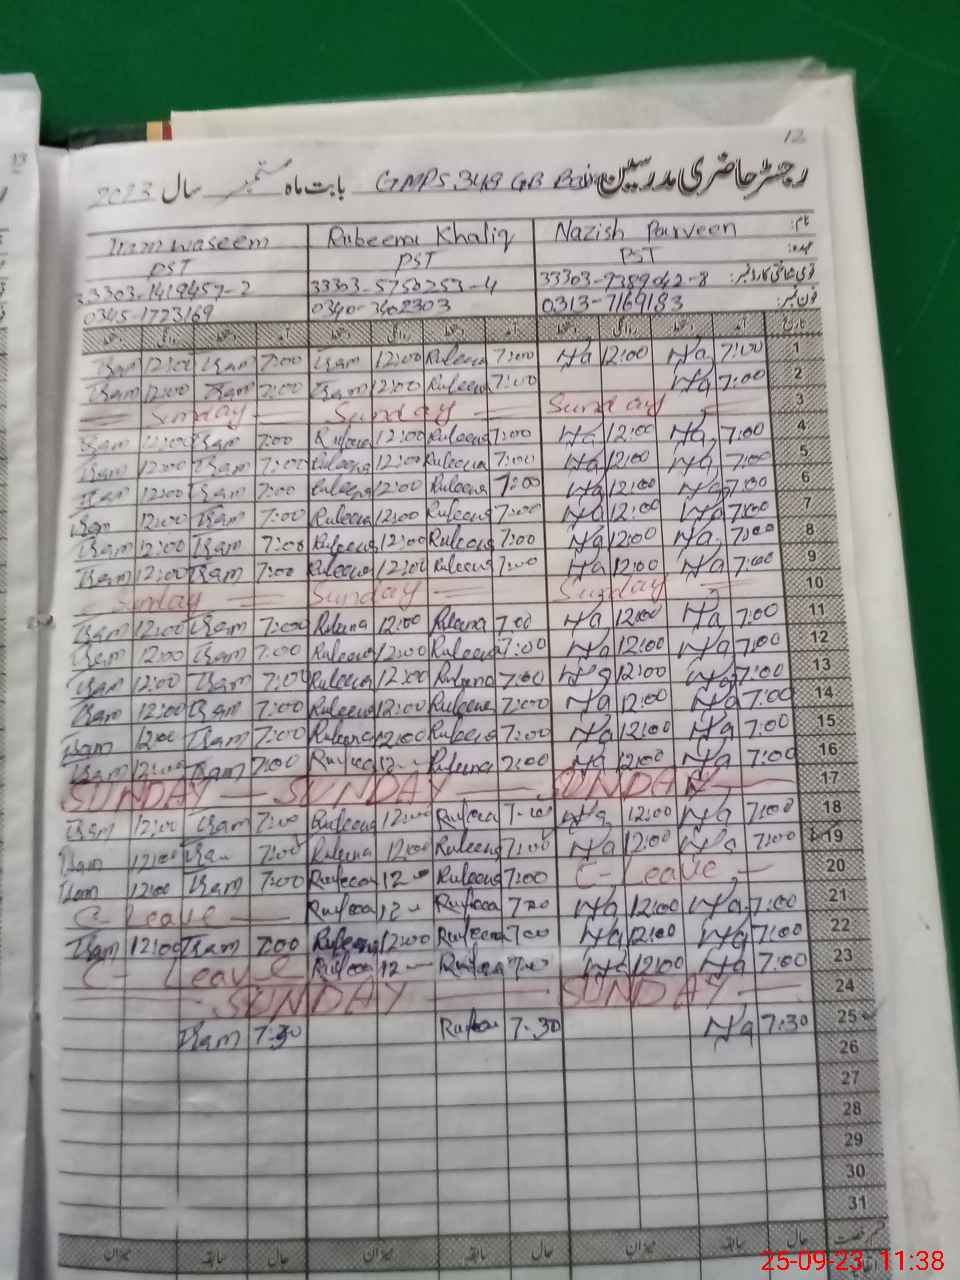 12
رجسٹر حاضری مدرسین GMPS 349 GB بابت ماہ ستمبر سال 2023
نام: Nazish Parveen Rubeena Khaliq Iram waseem
عہدہ: PST PST PST
قومی شناختی کارڈ نمبر: 33303-7359042-8 33303-5750253-4 33303-1419457-2
فون نمبر: 0313-7169183 0340-3402303 0345-1723169
تاریخ آمد دستخط روانگی دستخط آمد دستخط روانگی دستخط آمد دستخط روانگی دستخط
Iram 12:00 Iram 7:00 Iram 12:00 Rubeena 7:00 Na 12:00 Na 7:00 1
Iram 12:00 Iram 7:00 Iram 12:00 Rubeena 7:00 Na 7:00 2
Sunday Sunday Sunday 3
Iram 12:00 Iram 7:00 Rubeena 12:00 Rubeena 7:00 Na 12:00 Na 7:00 4
Iram 12:00 Iram 7:00 Rubeena 12:00 Rubeena 7:00 Na 12:00 Na 7:00 5
Iram 12:00 Iram 7:00 Rubeena 12:00 Rubeena 7:00 Na 12:00 Na 7:00 6
Iram 12:00 Iram 7:00 Rubeena 12:00 Rubeena 7:00 Na 12:00 Na 7:00 7
Iram 12:00 Iram 7:00 Rubeena 12:00 Rubeena 7:00 Na 12:00 Na 7:00 8
Iram 12:00 Iram 7:00 Rubeena 12:00 Rubeena 7:00 Na 12:00 Na 7:00 9
Sunday Sunday Sunday 10
Iram 12:00 Iram 7:00 Rubeena 12:00 Rubeena 7:00 Na 12:00 Na 7:00 11
Iram 12:00 Iram 7:00 Rubeena 12:00 Rubeena 7:00 Na 12:00 Na 7:00 12
Iram 12:00 Iram 7:00 Rubeena 12:00 Rubeena 7:00 Na 12:00 Na 7:00 13
Iram 12:00 Iram 7:00 Rubeena 12:00 Rubeena 7:00 Na 12:00 Na 7:00 14
Iram 12:00 Iram 7:00 Rubeena 12:00 Rubeena 7:00 Na 12:00 Na 7:00 15
Iram 12:00 Iram 7:00 Rubeena 12- Rubeena 7:00 Na 12:00 Na 7:00 16
SUNDAY SUNDAY SUNDAY 17
Iram 12:00 Iram 7:00 Rubeena 12:00 Rubeena 7:00 Na 12:00 Na 7:00 18
Iram 12:00 Iram 7:00 Rubeena 12:00 Rubeena 7:00 Na 12:00 Na 7:00 19
Iram 12:00 Iram 7:00 Rubeena 12- Rubeena 7:00 C-Leave 20
C-Leave Rubeena 12- Rubeena 7:00 Na 12:00 Na 7:00 21
Iram 12:00 Iram 7:00 Rubeena 12:00 Rubeena 7:00 Na 12:00 Na 7:00 22
C-Leave Rubeena 12- Rubeena 7:00 Na 12:00 Na 7:00 23
SUNDAY SUNDAY 24
Iram 7:30 Rubeena 7-30 Na 7:30 25
26
27
28
29
30
31
قسم رخصت حال سابقہ میزان حال سابقہ میزان حال سابقہ میزان
25-09-23 11:38
13